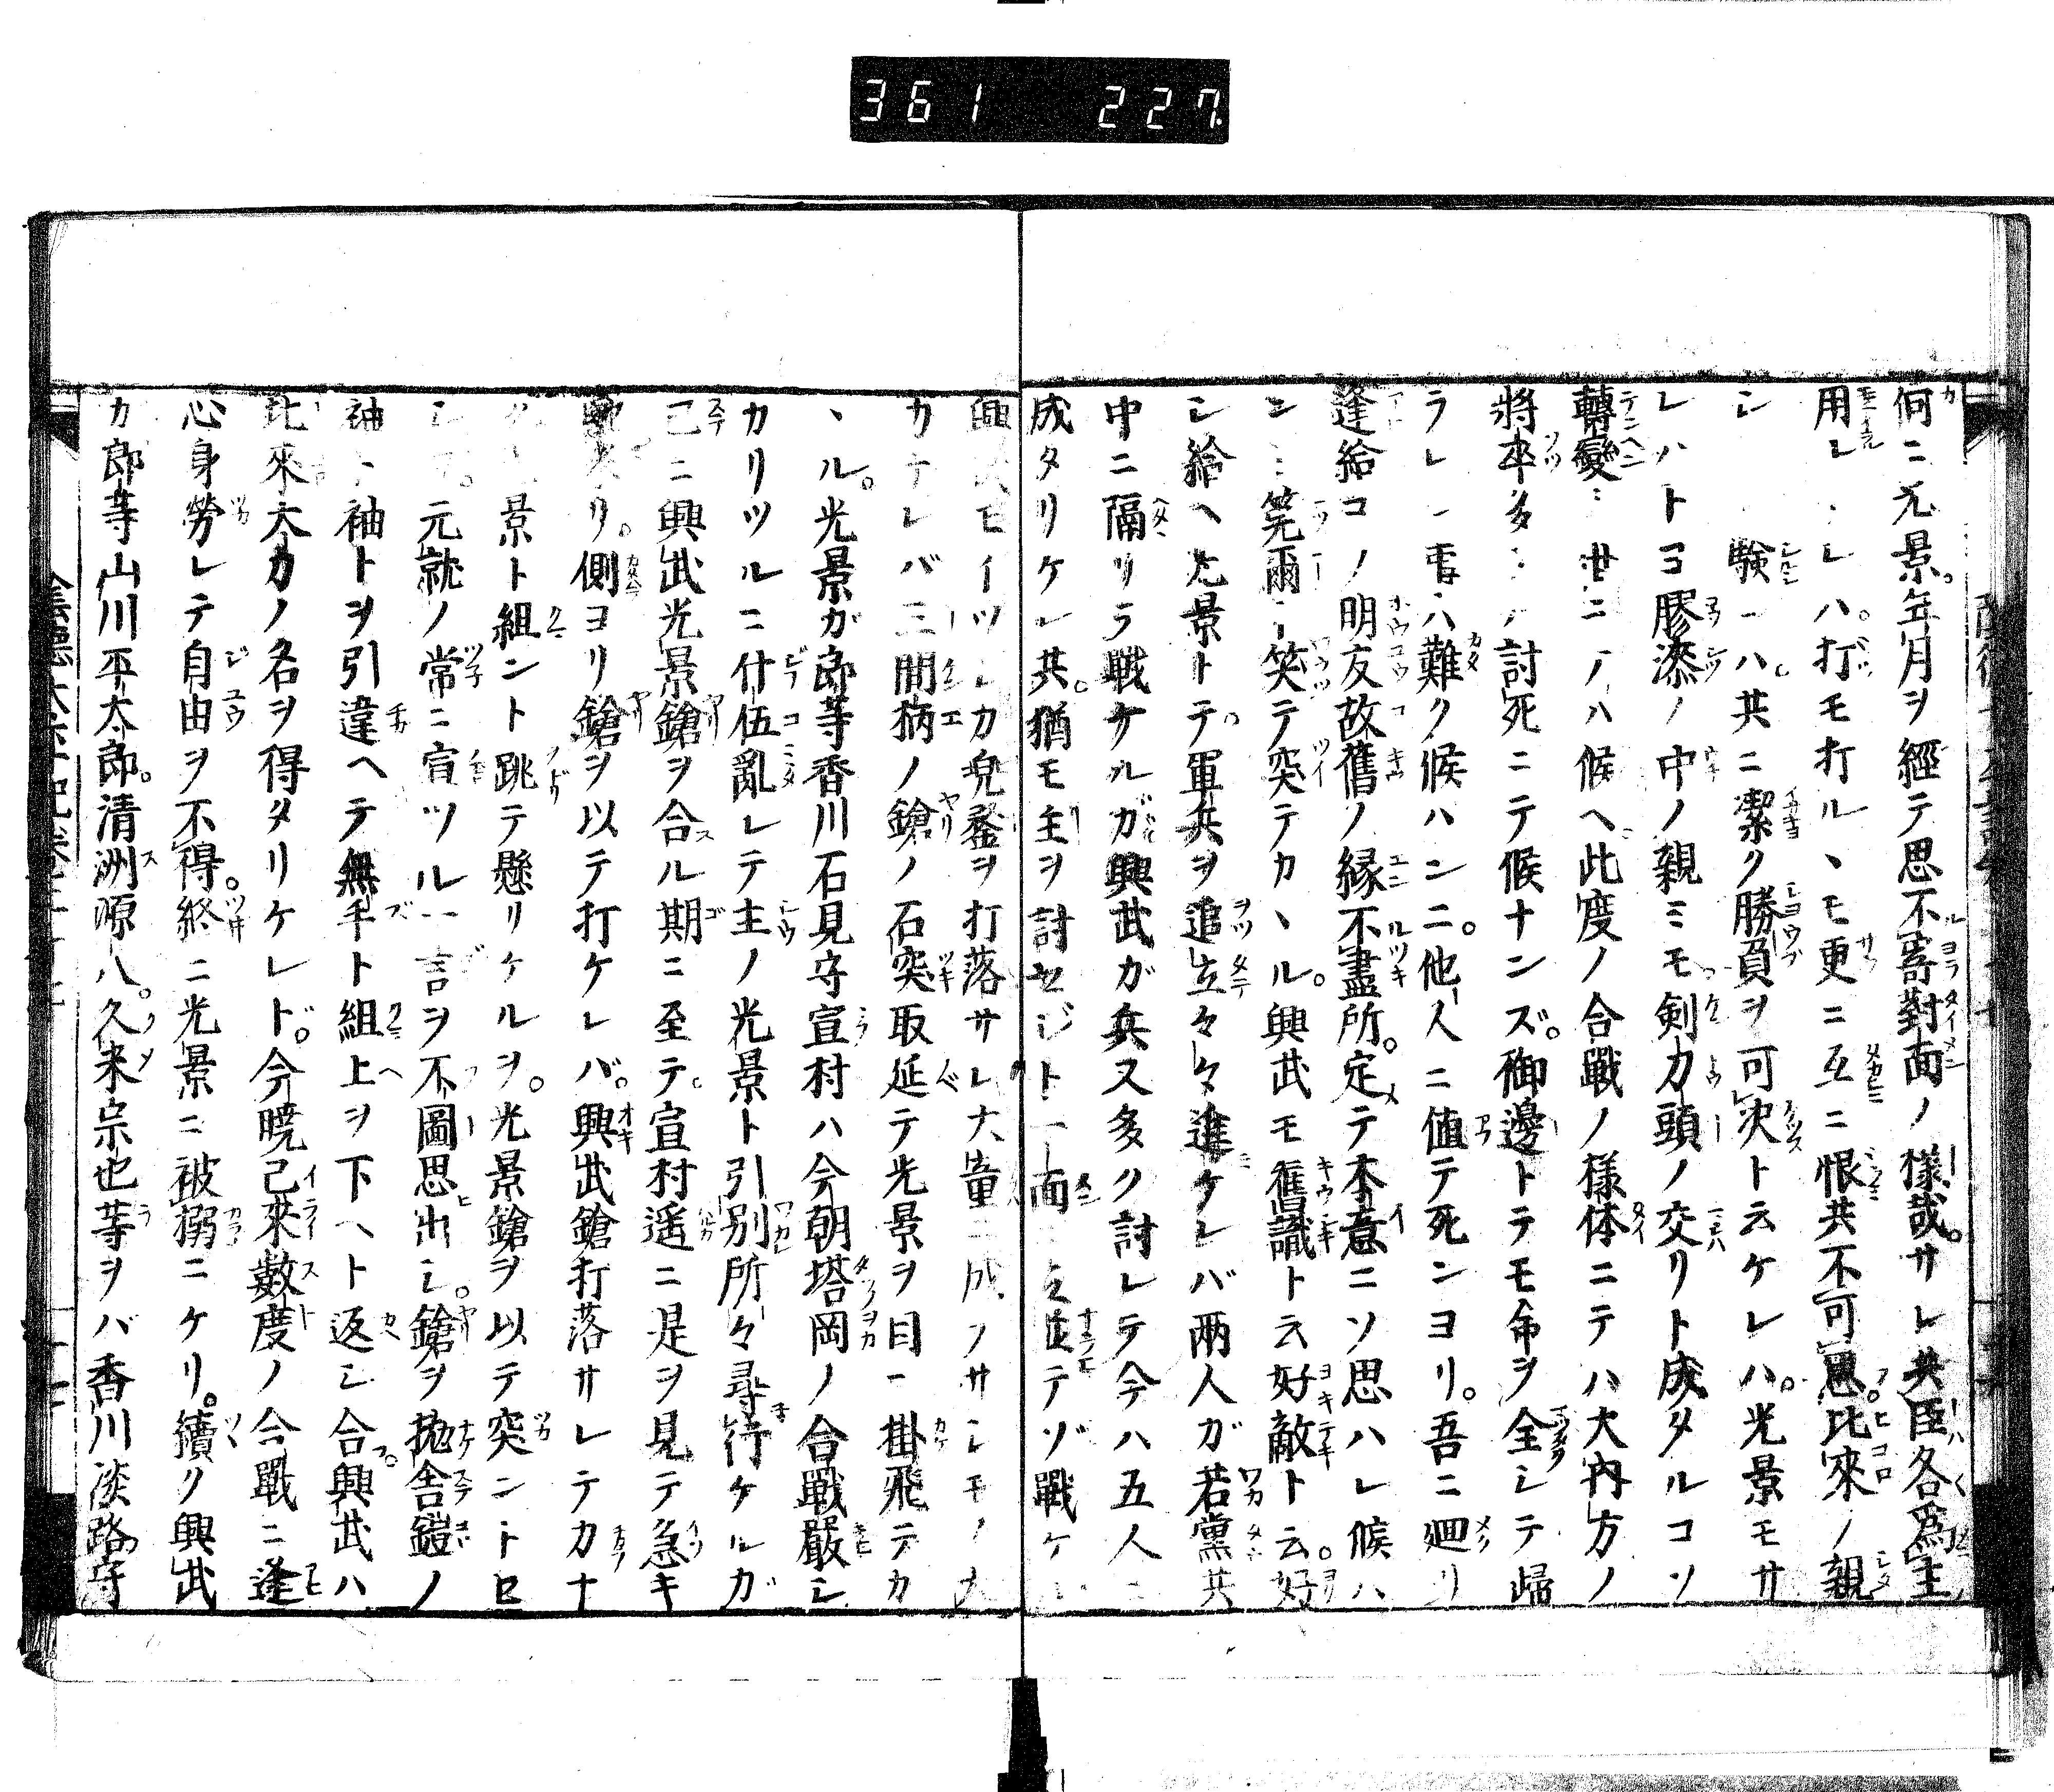 361 227
何ニ光景。年月ヲ經テ思不寄對面ノ樣哉。サレ共臣各爲主
用レ レハ。打モ打ル丶モ更ニ互ニ恨共不可思。比來ノ親
シ 驗ーハ。其ニ潔ク勝負ヲ可決ト云ケレハ。光景モサ
レハトヨ膠漆ノ中ノ親ミモ剣刀頭ノ交リト成タルコソ
轉變 世ニノハ候ヘ此度ノ合戰ノ樣体ニテハ大内方ノ
將卒多 ク討死ニテ候ナンズ。御邊トテモ命ヲ全シテ歸
ラレン事ハ難ク候ハンニ。他人ニ値テ死ンヨリ。吾ニ廻リ
逢給コノ明友故舊ノ縁不盡所。定テ本意ニソ思ハレ候ハ
ン 莞爾ト笑テ突テカ丶ル。興武モ舊識ト云好敵ト云。好
シ給ヘ光景トテ。軍兵ヲ追立々々進ケレバ兩人ガ若黨共
中ニ隔リラ戰ケルガ興武ガ兵又多ク討レテ今ハ五人ニ
成タリケレ共。猶モ主ヲ討セジト一面ニ立並テゾ戰ケル
興武モイツシカ兜鍪ヲ打落サレ大童ニ成ノサシモノ大
カナレバ三間柄ノ鎗ノ石突取延テ光景ヲ目ニ掛飛テカ
丶ル。光景ガ郎等香川石見守宣村ハ今朝塔岡ノ合戰嚴シ
カリツルニ什伍亂レテ主ノ光景ト引別所々尋行ケルガ
已ニ興武光景鎗ヲ合スル期ニ至テ。宣村遥ニ是ヲ見テ急キ
リ。側ヨリ鎗ヲ以テ打ケレバ。興武鎗打落サレテカナ
景ト組ント跳テ懸リケルヲ。光景鎗ヲ以テ突ントセ
シ 。元就ノ常ニ宣ツル一言ヲ不圖思出シ。鎗ヲ抛舍鎧ノ
袖ト袖トヲ引違ヘテ無手ト組上ヲ下ヘト返シ合興武ハ
比來大力ノ名ヲ得タリケレド。今曉已來數度ノ合戰ニ逢
心身勞レテ自由ヲ不得。終ニ光景ニ被搦ニケリ。續ク興武
カ郎等山川平太郎。清洲源八。久米宗也等ヲバ香川淡路守